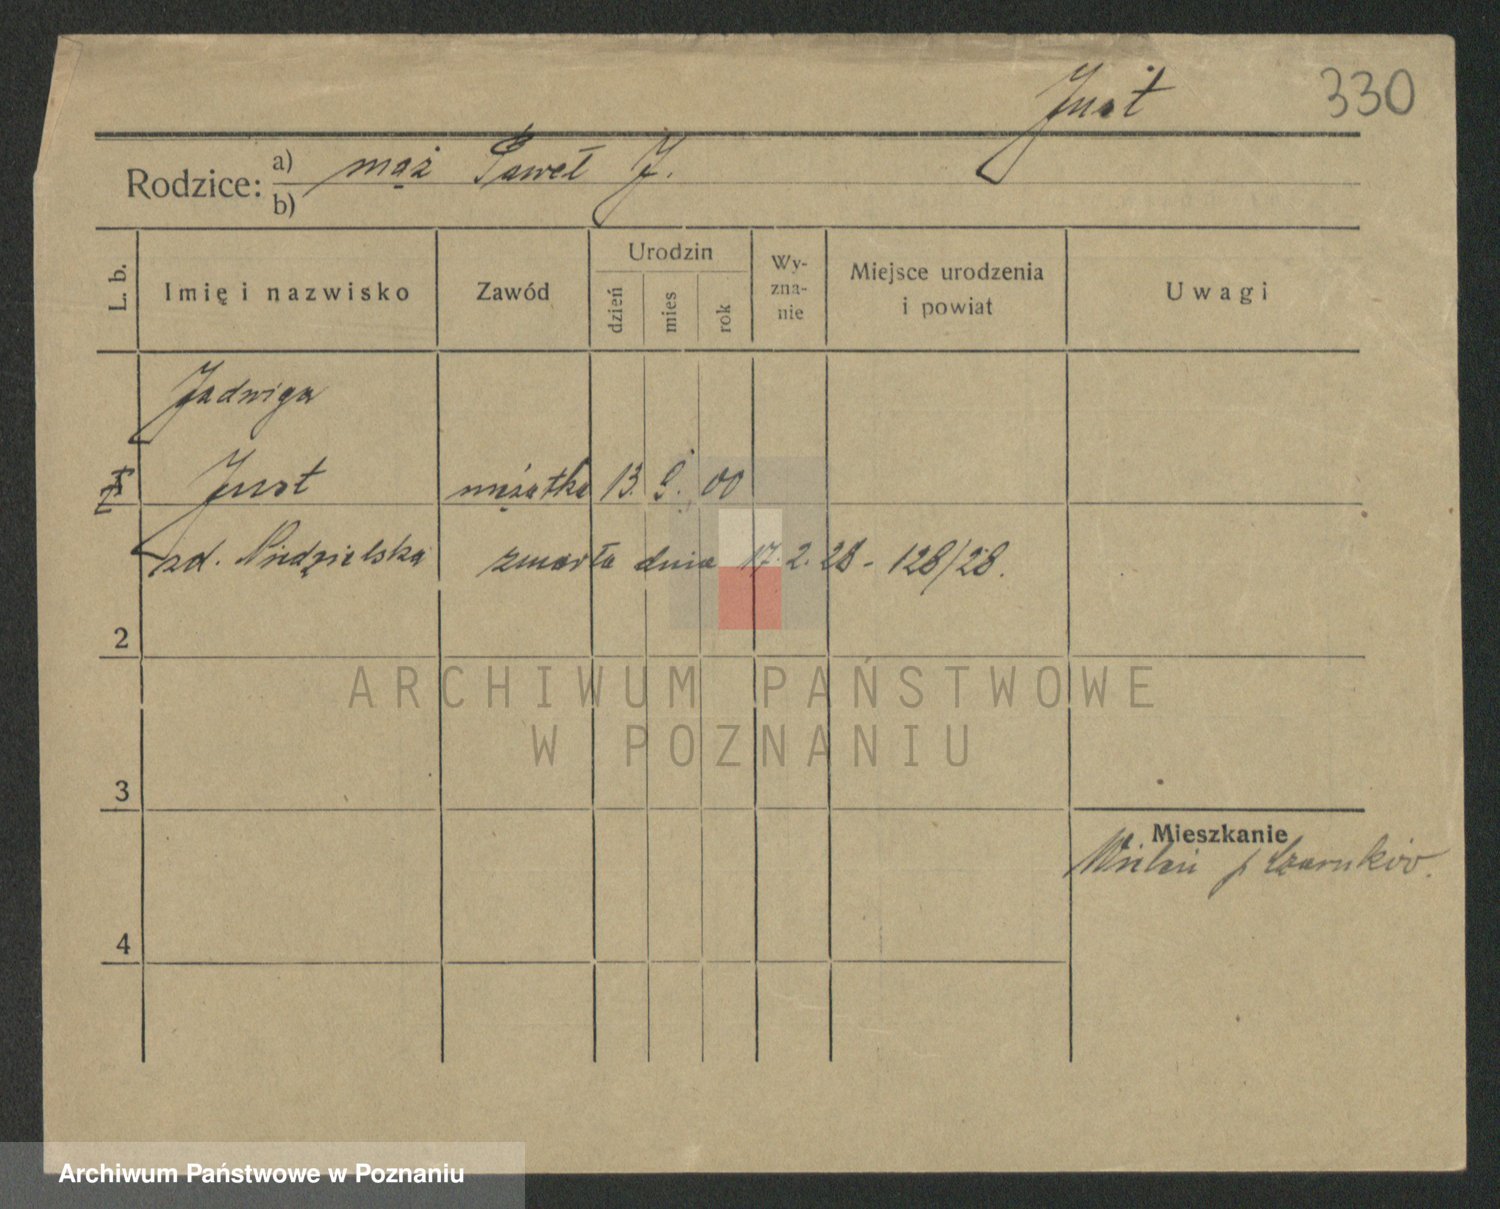 330
Just
Rodzice: a) mąż Paweł J.
b)
L. b.
Imię i nazwisko
Zawód
Urodzin
dzień
mies
rok
Wy-
zna-
nie
Miejsce urodzenia
i powiat
Uwagi
Jadwiga
Just mężatka 13. 9. 00
zd. Niedzielska zmarła dnia 17. 2. 28 - 128/28.
2
ARCHIWUM PAŃSTWOWE
W POZNANIU
3
Mieszkanie
p Czarnków.
4
Archiwum Państwowe w Poznaniu